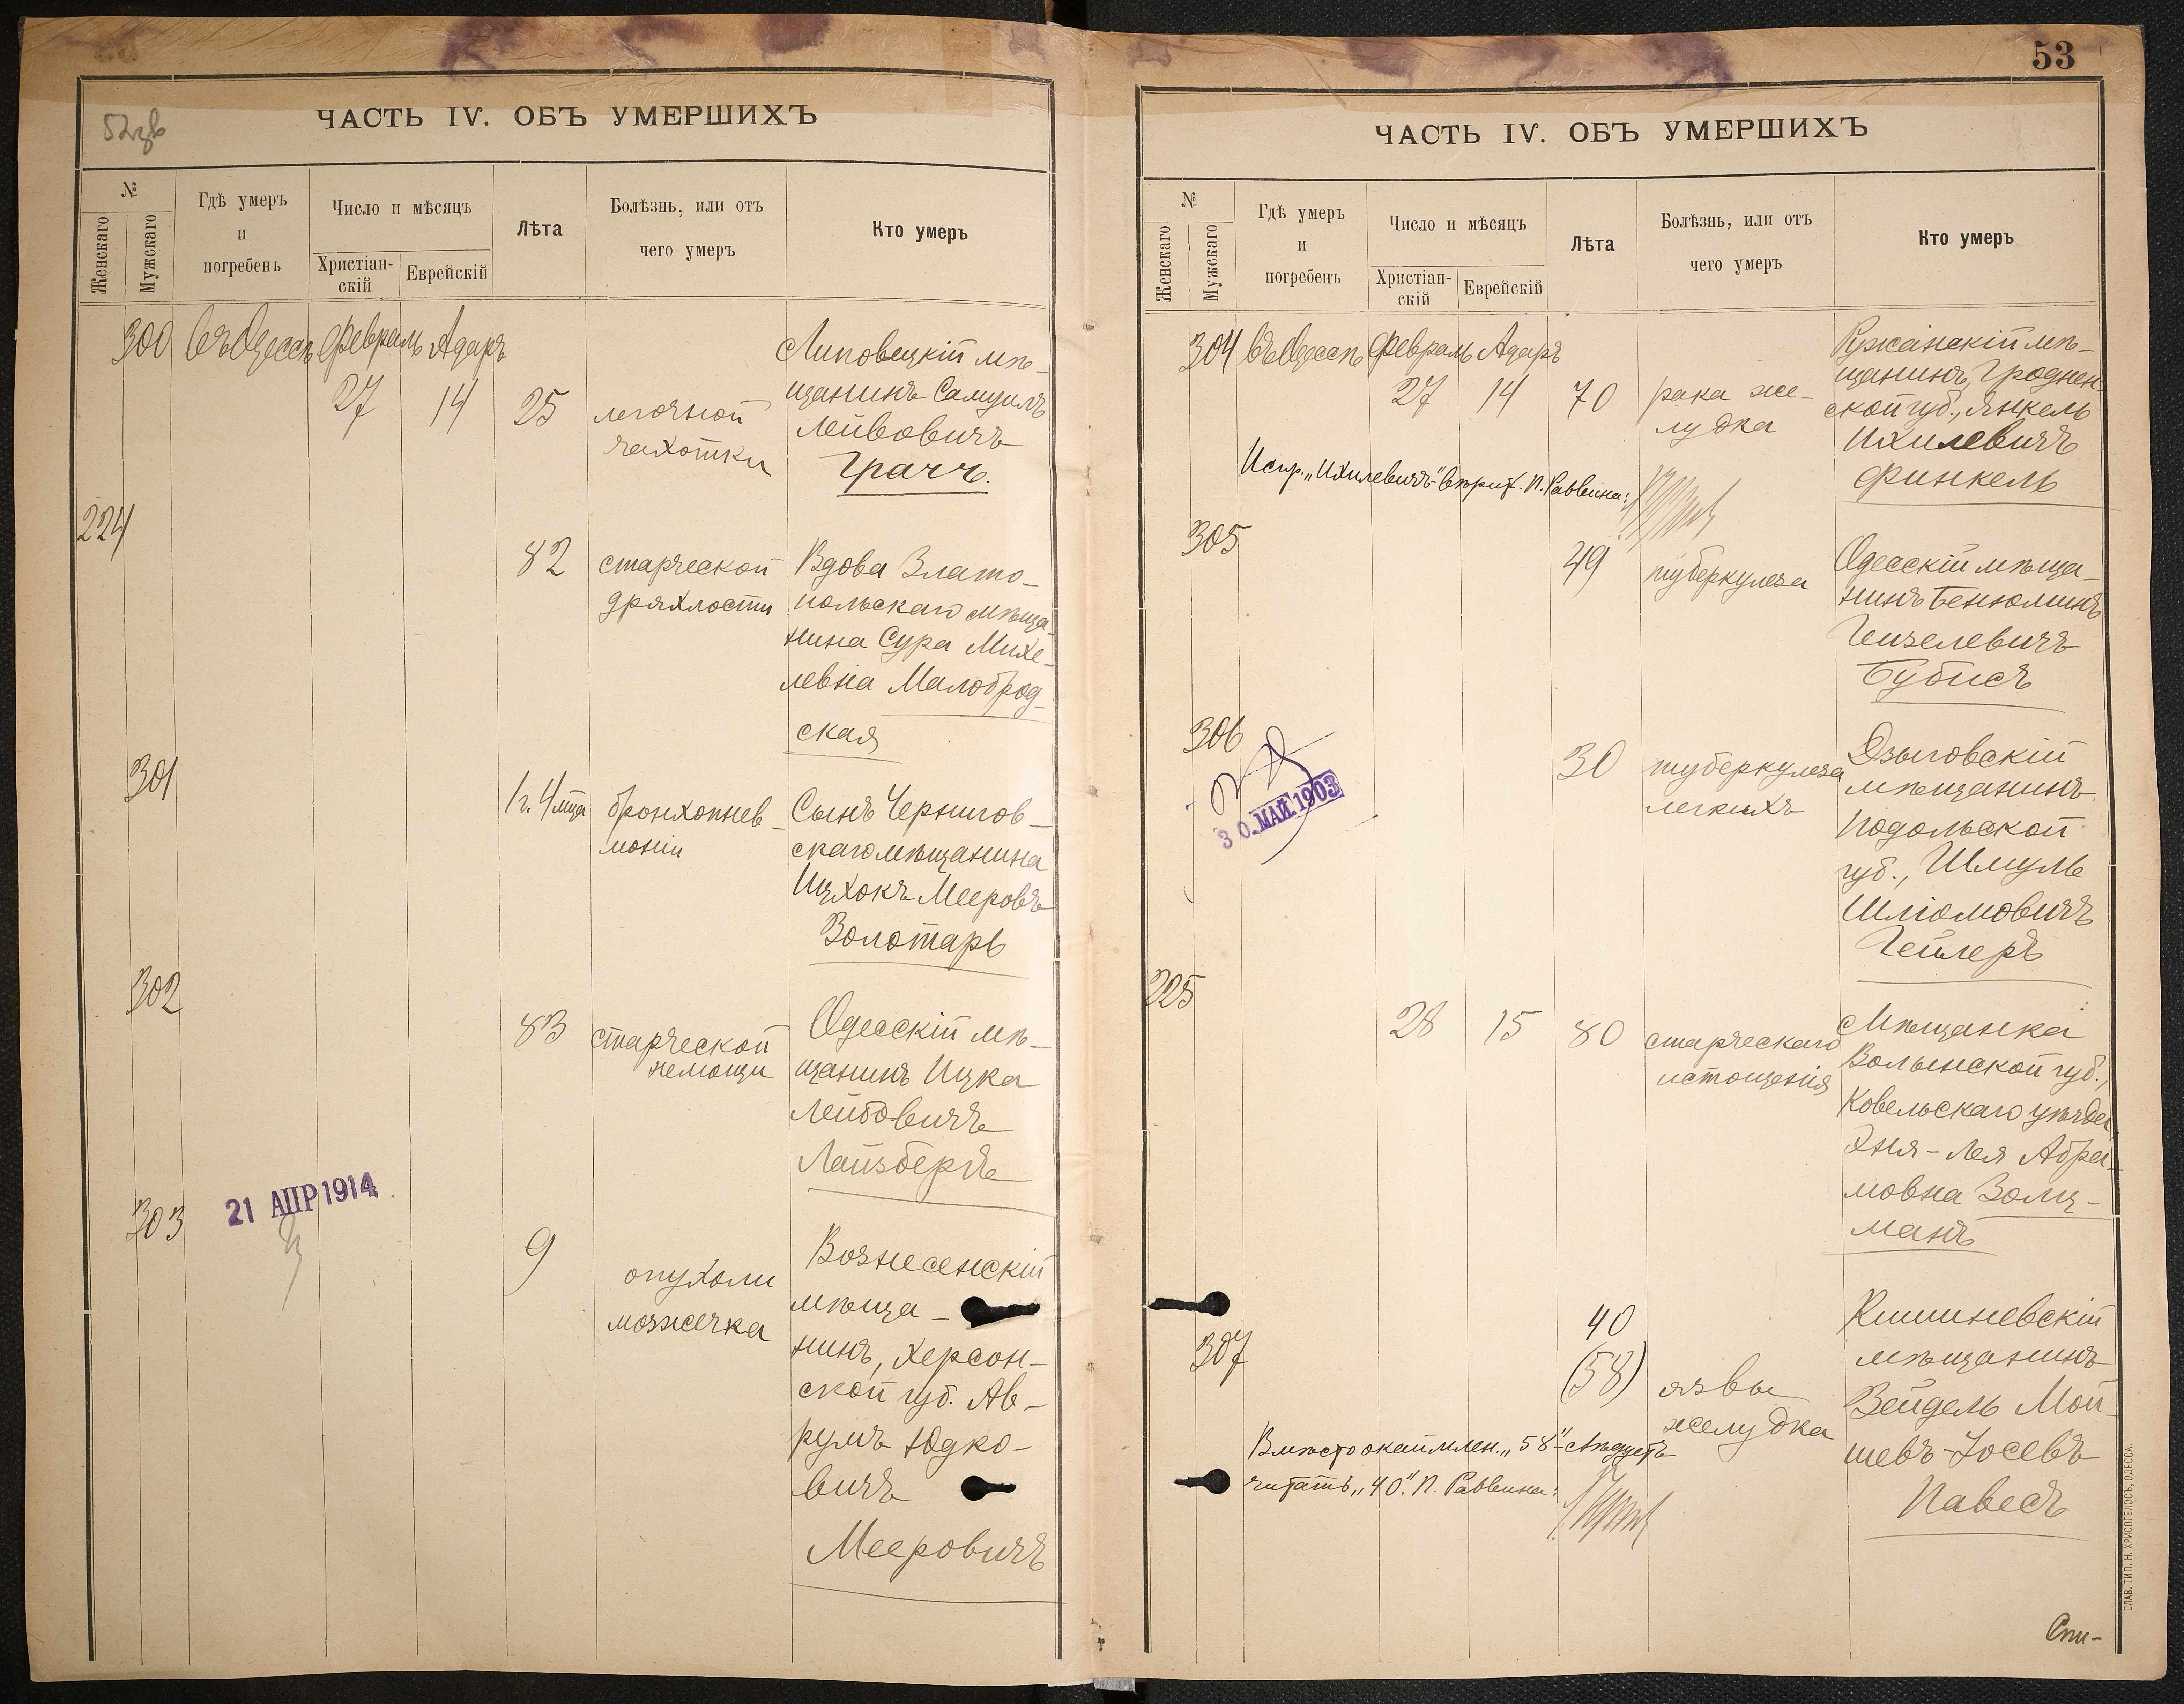 52 зв
ЧАСТЬ IV. ОБЪ УМЕРШИХЪ
№
Женскаго
Мужскаго
Гдѣ умеръ
и
погребенъ
Число и мѣсяцъ
Христіан-
скій
Еврейскій
Лѣта
Болѣзнь, или отъ
чего умеръ
Кто умеръ
300 въ Одессѣ Февраль Адаръ
27 14 25
легочной
чахотки
Липовецкій мѣ-
щанинъ Самуилъ
Лейвовичъ
Грачъ.
224
82
старческой
дряхлости
Вдова Злато-
польскаго мѣща-
нина Сура Михе-
левна Малоброд-
ская
301
1 г. 4 мца
бронхопнев-
моніи
Сынъ Чернигов-
скаго мѣщанина
Ицхокъ Мееровъ
Золотарь
302
83
старческой
немощи
Одесскій мѣ-
щанинъ Ицка
Лейбовичъ
Лайзбергъ
303
21 АПР 1914
9
опухоли
мозжечка
Вознесенскій
мѣща-
нинъ, Херсон-
ской губ. Ав-
румъ Юдко-
вичъ
Мееровичъ
53
ЧАСТЬ IV. ОБЪ УМЕРШИХЪ
№
Женскаго
Мужскаго
Гдѣ умеръ
и
погребенъ
Число и мѣсяцъ
Христіан-
скій
Еврейскій
Лѣта
Болѣзнь, или отъ
чего умеръ
Кто умеръ
304 въ Одессѣ Февраль Адаръ
27 14 70
рака же-
лудка
мѣ-
щанинъ, Гроднен-
ской губ., Янкель
Ихилевичъ
Финкель
Испр. „Ихилевичъ“ вѣрить. П. Раввина:
305
49
туберкулеза
Одесскій мѣща-
нинъ Бенюминъ
Гецелевичъ
Бубисъ
306
30 МАЙ 1903
30
туберкулеза
легкихъ
Дзыговскій
мѣщанинъ
Подольской
губ., Шмуль
Шліомовичъ
Гейлеръ
225
28 15 80
старческаго
истощенія
Мѣщанка
Волынской губ.,
Ковельскаго уѣзда
Хня-Лея Абра-
мовна Золц-
манъ
307
40
(58)
язвы
желудка
Кишиневскій
мѣщанинъ
Зейдель Мой-
шевъ-Іосевъ
Павесъ
Вмѣсто окаймлен. „58“ слѣдуетъ
читать „40“. П. Раввина:
Спи-
СЛАВ. ТИП. Н. ХРИСОГЕЛОСЪ, ОДЕССА.